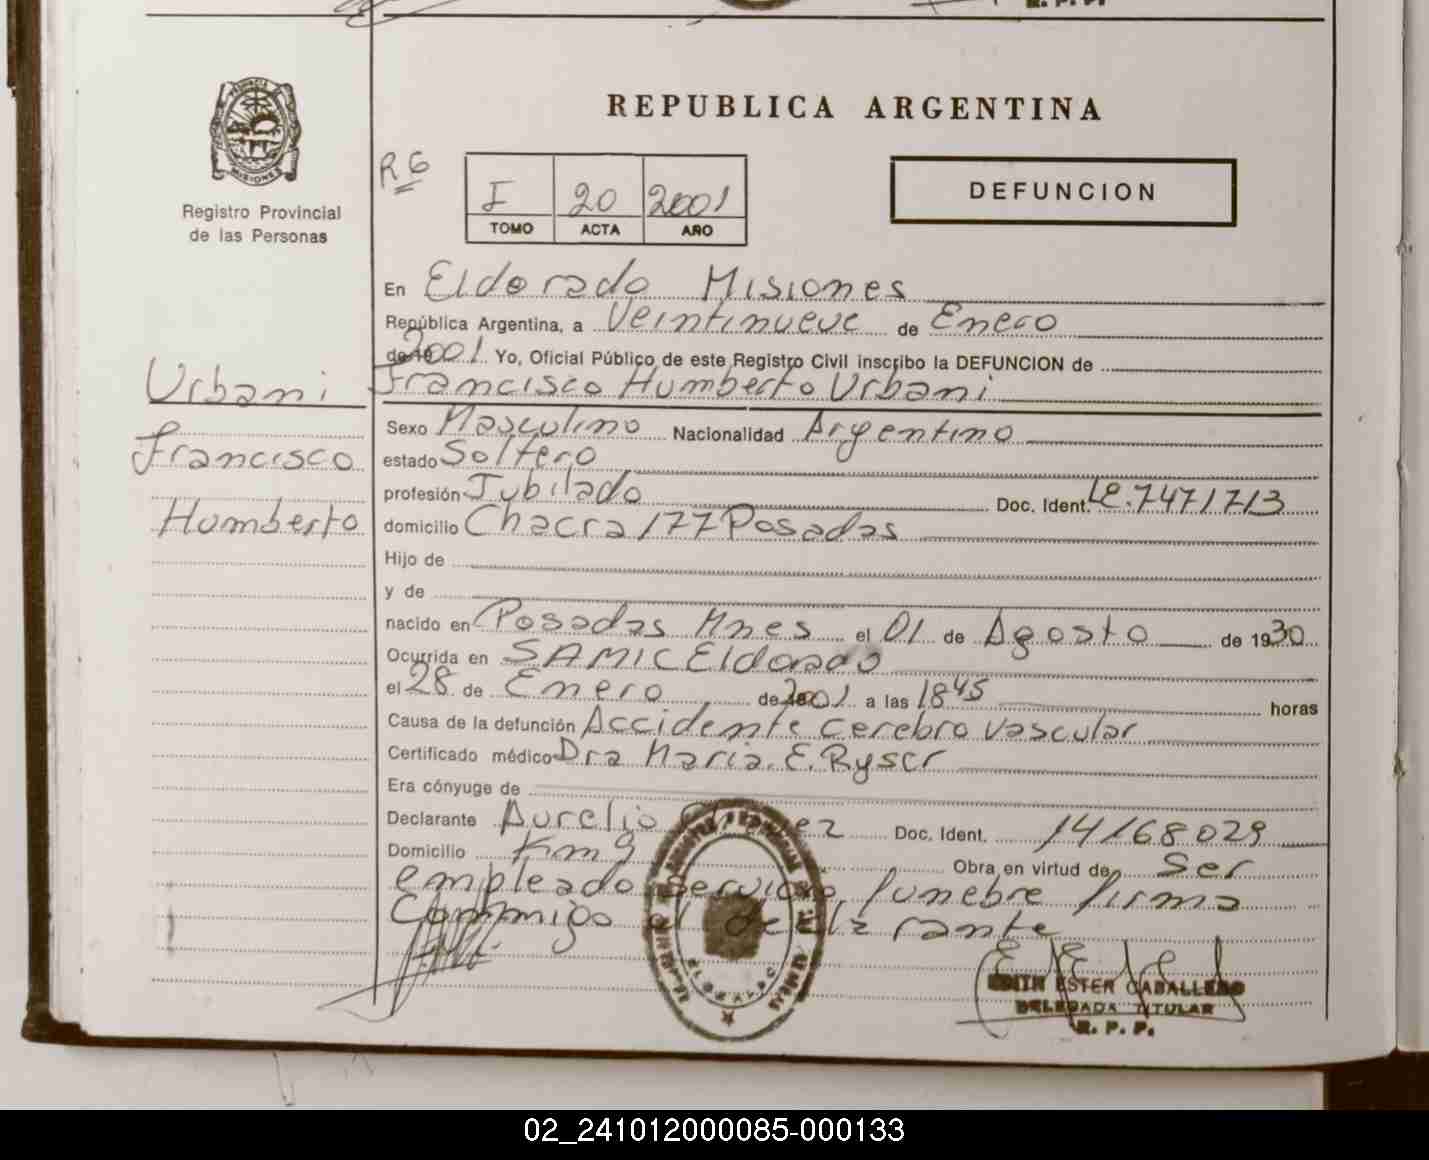 R. P. P.
PROVINCIA DE
MISIONES
Registro Provincial
de las Personas
REPUBLICA ARGENTINA
RG
I 20 2001
TOMO ACTA AÑO
DEFUNCION
En Eldorado Misiones
República Argentina, a Veintinueve de Enero
de 19 2001 Yo, Oficial Público de este Registro Civil inscribo la DEFUNCION de
Urbani Francisco Humberto Urbani
Sexo Masculino Nacionalidad Argentino
Francisco estado Soltero
profesión Jubilado Doc. Ident. LE.7471713
Humberto domicilio Chacra 177 Posadas
Hijo de
y de
nacido en Posadas Mnes el 01 de Agosto de 1930
Ocurrida en SAMIC Eldorado
el 28 de Enero de 2001 a las 18 45 horas
Causa de la defunción Accidente cerebro vascular
Certificado médico Dra Maria. E. Ryser
Era cónyuge de
Declarante Aurelio Doc. Ident. 14168029
Domicilio Km 9 Obra en virtud de Ser
empleado servicio funebre firma
Conmigo el declarante
EDITH ESTER CABALLERO
DELEGADA TITULAR
R. P. P.
ELDORADO
02_241012000085-000133